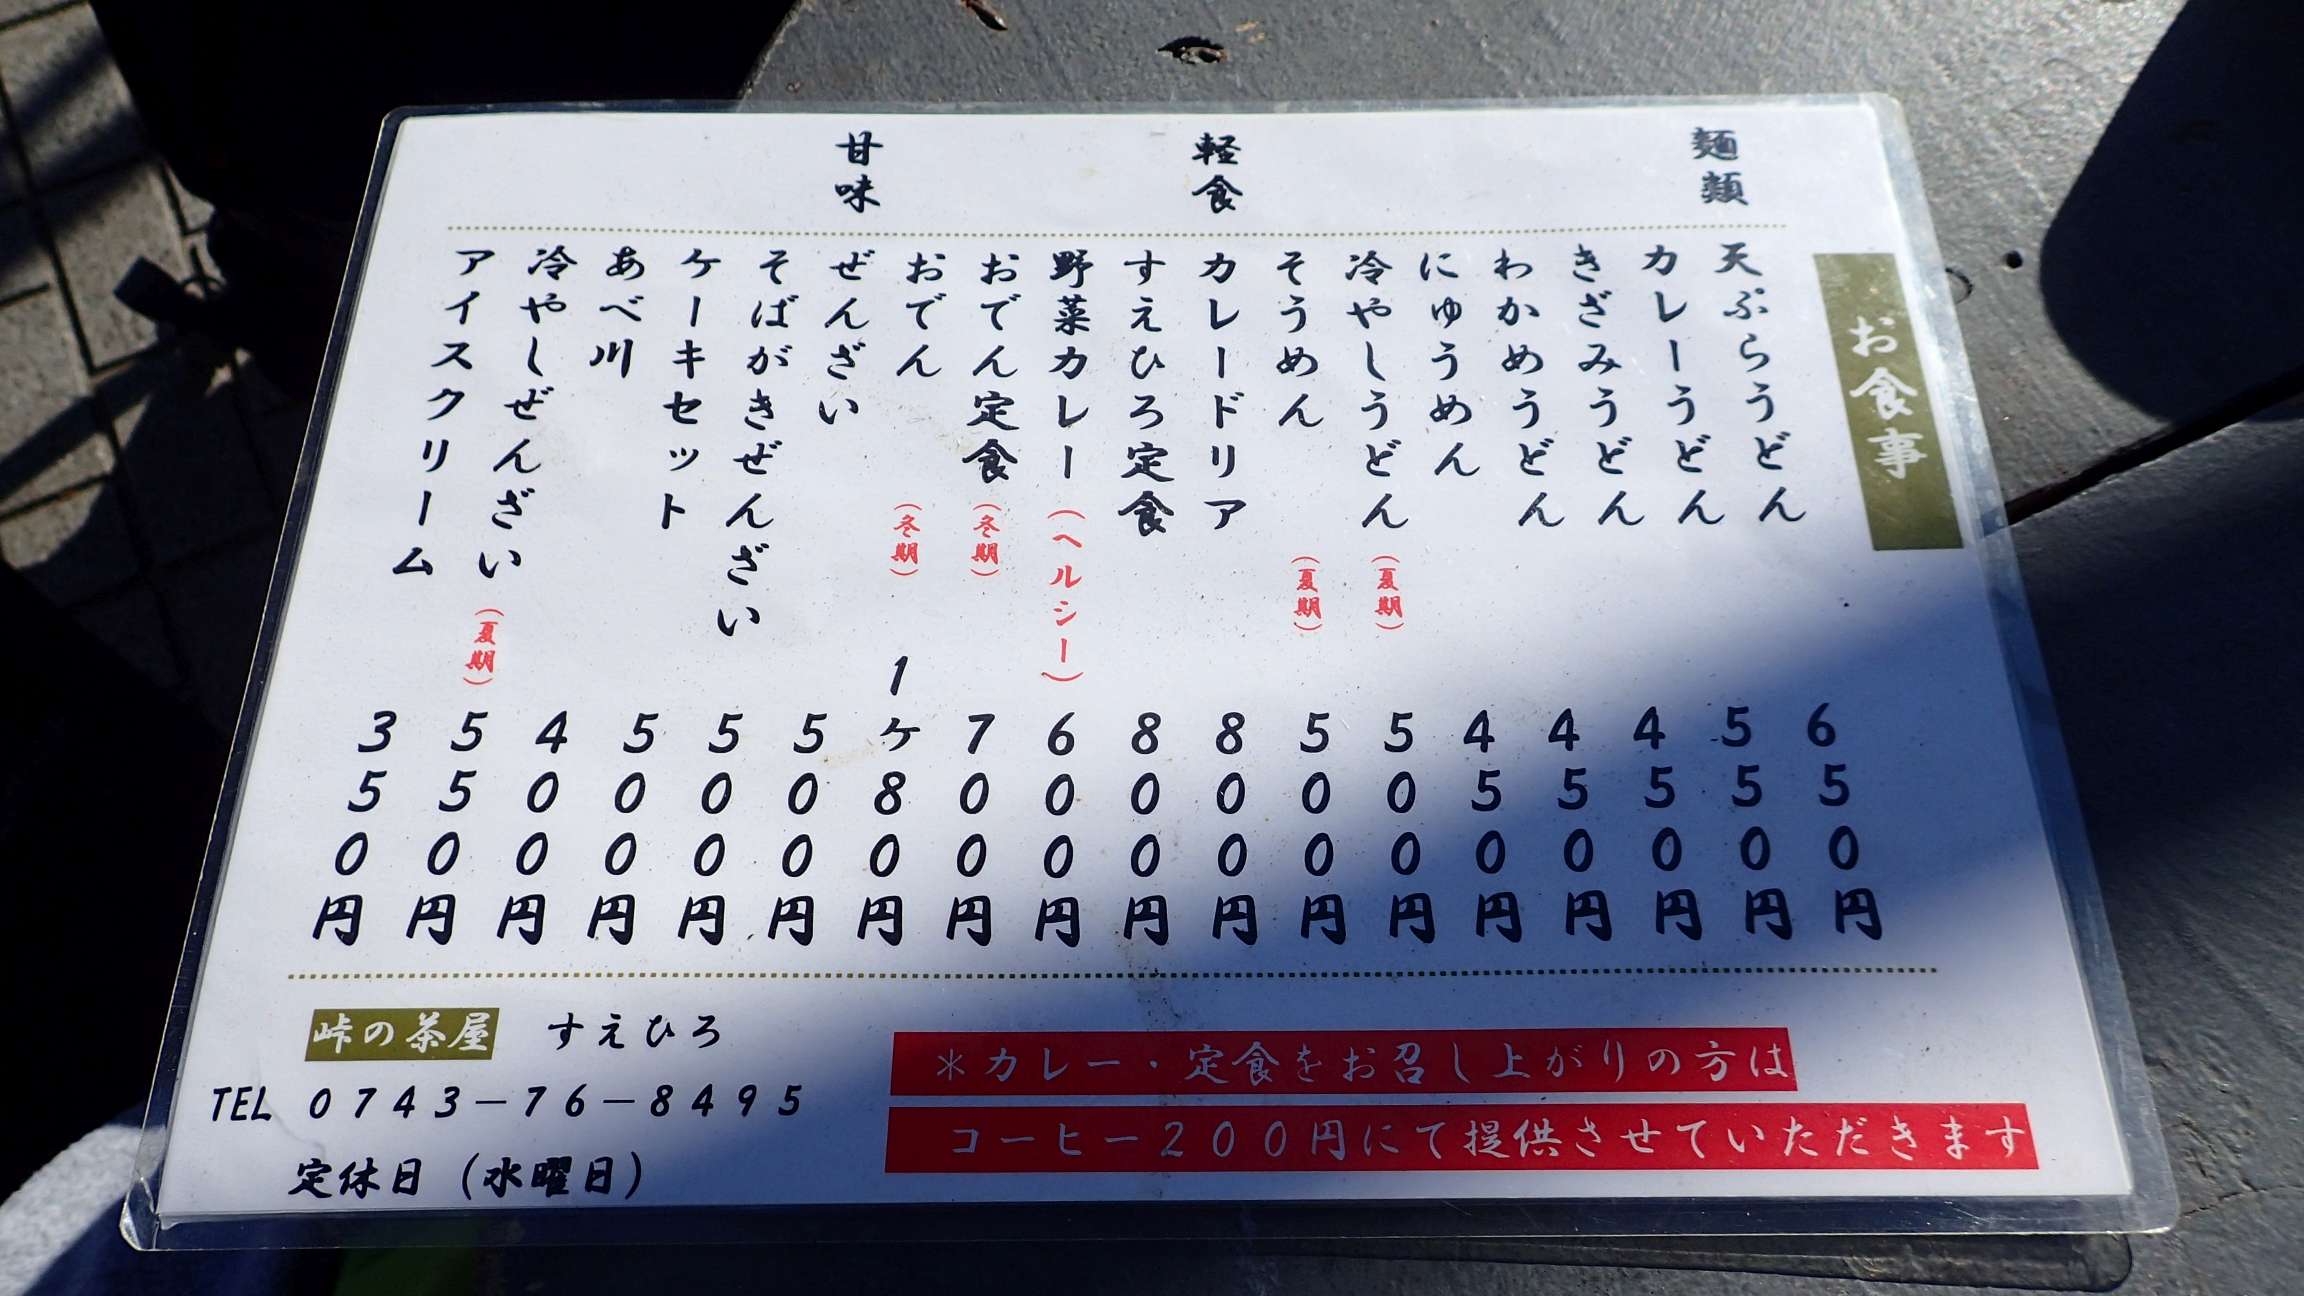 お食事
麺類
天ぷらうどん 650円
カレーうどん 550円
きざみうどん 450円
わかめうどん 450円
にゅうめん 450円
冷やしうどん (夏期) 500円
そうめん (夏期) 500円
軽食
カレードリア 800円
すえひろ定食 800円
野菜カレー (ヘルシー) 600円
おでん定食 (冬期) 700円
おでん (冬期) 1ヶ80円
甘味
ぜんざい 500円
そばがきぜんざい 500円
ケーキセット 500円
あべ川 400円
冷やしぜんざい (夏期) 550円
アイスクリーム 350円
峠の茶屋 すえひろ
TEL 0743-76-8495
定休日 (水曜日)
*カレー・定食をお召し上がりの方は
コーヒー200円にて提供させていただきます